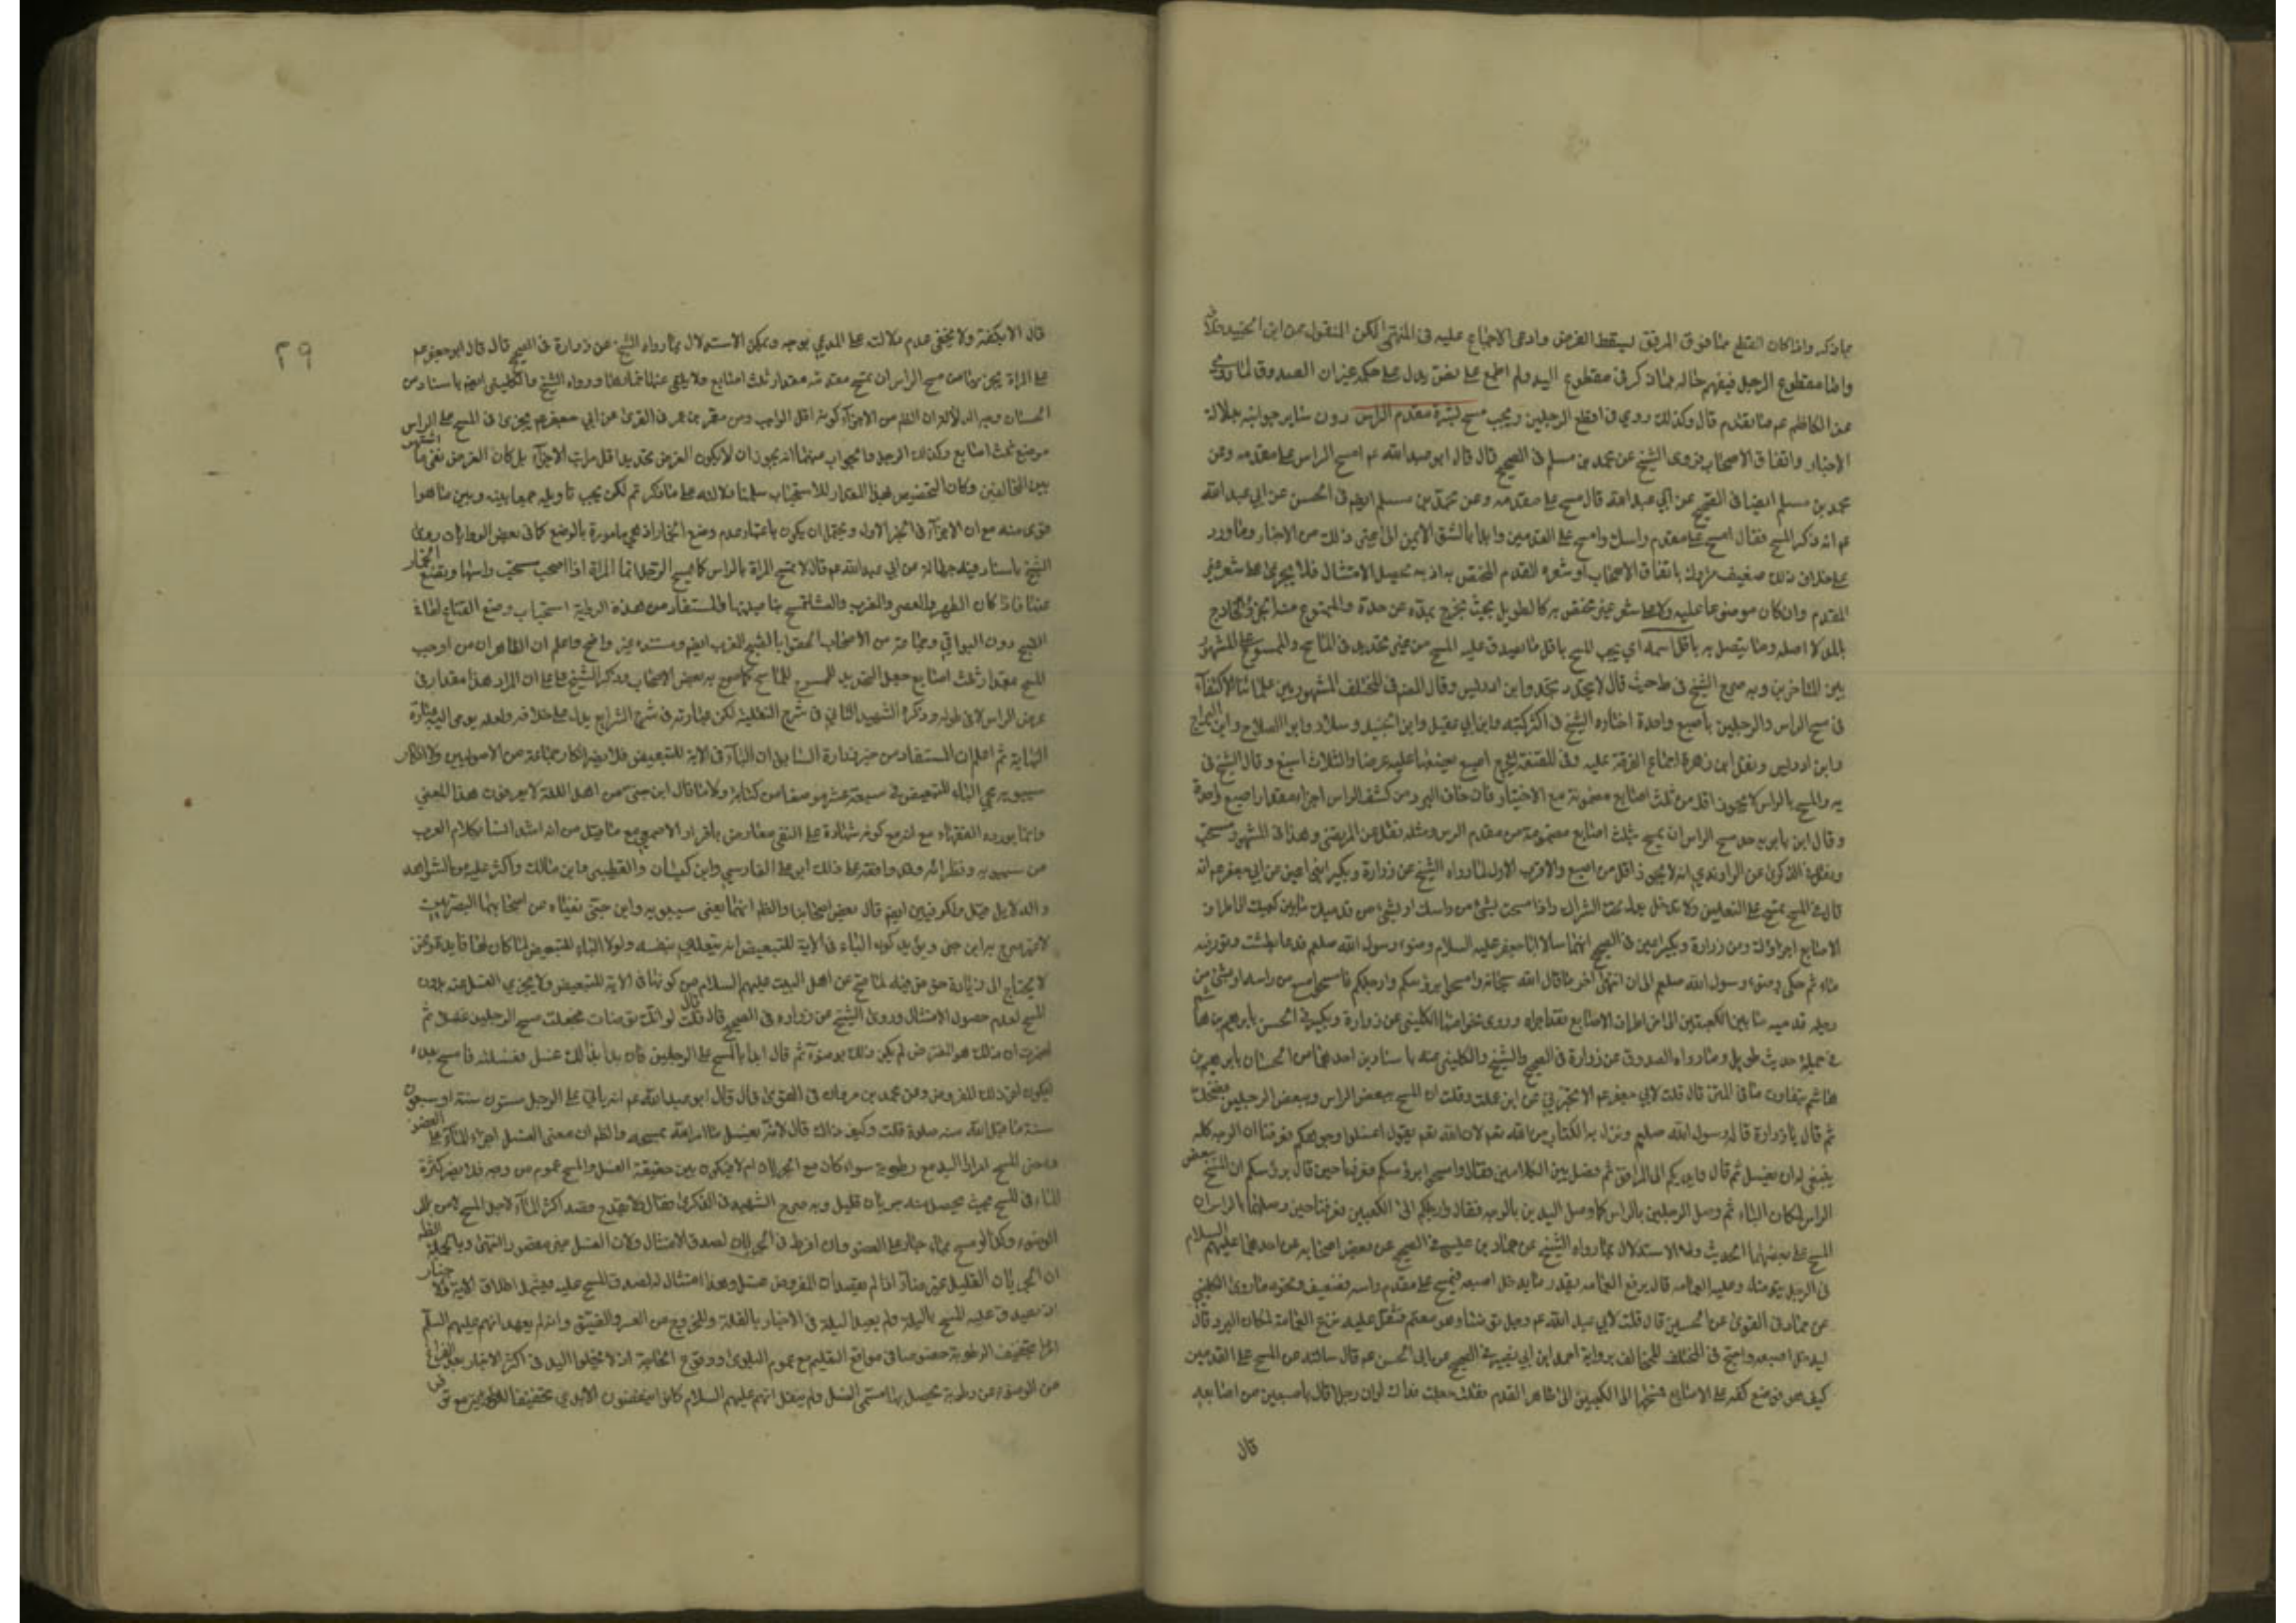 بما ذكره واذا كان القطع مما فوق المرفق ليسقط الفرض وادعى الاجماع عليه فى المنتهى لكن المنقول عن ابن الجنيد
واما مقطوع الرجل فيفهم حاله مما ذكر فى مقطوع اليد ولم اطلع على نص يدل على حكمه غير ان الصدوق لما روى
عن الكاظم عم ما تقدم قال وكذلك روي فى اقطع الرجلين ويجب مسح بشرة مقدم الراس دون ساير جوانبه بدلالة
الاخبار واتفاق الاصحاب فروى الشيخ عن محمد بن مسلم فى الصحيح قال قال ابو عبد الله عم امسح الراس على مقدمه وعن
محمد بن مسلم ايضا فى الصحيح عن ابي عبد الله قال مسح على مقدمه وعن محمد بن مسلم ايضا فى الحسن عن ابي عبد الله
عم انه ذكر المسح فقال امسح على مقدم راسك وامسح على القدمين وابدا بالشق الايمن الى غير ذلك من الاخبار وما ورد
على خلاف ذلك ضعيف متروك باتفاق الاصحاب او شعره المقدم المختص به اذ به يحصل الامتثال فلا يجزى على شعر غير
المقدم وان كان موضوعا عليه ولا على شعر غير مختص به كالطويل بحيث يخرج بمده عن حده والممنوع منه الجزء الخارج
بالمد لا اصله وما يتصل به باقل اسمه اي يجب المسح باقل ما يصدق عليه المسح من غير تحديد فى الماسح والممسوح على المشهور
بين المتاخرين وبه صرح الشيخ فى ط حيث قال لا يتحدد بحد وابن ادريس وقال المصنف فى المختلف المشهور بين علمائنا الاكتفاء
فى مسح الراس والرجلين باصبع واحدة اختاره الشيخ فى اكثر كتبه وابن ابي عقيل وابن الجنيد وسلار وابو الصلاح وابن البراج
وابن ادريس ونقل ابن زهرة اجماع الفرقة عليه وفى المقنعة يجزي اصبع يضعها عليه عرضا والثلاث اسبغ وقال الشيخ فى
يه والمسح بالراس لا يجوز اقل من ثلث اصابع مضمومة مع الاختيار فان خاف البرد من كشف الراس اجزاه مقدار اصبع واحدة
وقال ابن بابويه حد مسح الراس ان يمسح بثلث اصابع مضمومة من مقدم الراس ومثله نقل عن المرتضى وهذا فى المشهور مستحب
ونقل فى الذكرى عن الراوندي انه لا يجوز اقل من اصبع والاقرب الاول لما رواه الشيخ عن زرارة وبكير ابني اعين عن ابي جعفر عم انه
قال فى المسح تمسح على النعلين ولا تدخل يدك تحت الشراك واذا مسحت بشئ من راسك او بشئ من قدميك ما بين كعبيك الى اطراف
الاصابع اجزاك وعن زرارة وبكير ايضا فى الصحيح انهما سالا ابا جعفر عليه السلام عن وضوء رسول الله صلعم فدعا بطشت وتور فيه
ماء ثم حكى وضوء رسول الله صلعم الى ان انتهى الى اخر ما قال الله سبحانه وامسحوا برؤسكم وارجلكم فاذا مسح بشئ من راسه او بشئ من
رجليه قدميه ما بين الكعبين الى اطراف الاصابع فقد اجزاه وروى نحوا منها الكليني عن زرارة وبكير فى الحسن بابراهيم بن هاشم
فى جملة حديث طويل وما رواه الصدوق عن زرارة فى الصحيح والشيخ والكليني عنه باسنادين احدهما من الحسان بابراهيم بن
هاشم بتفاوت ما فى المتن قال قلت لابي جعفر عم الا تخبرني من اين علمت وقلت ان المسح ببعض الراس وببعض الرجلين فضحك
ثم قال يا زرارة قاله رسول الله صلعم ونزل به الكتاب من الله لان الله يقول اغسلوا وجوهكم فعرفنا ان الوجه كله
ينبغي له ان يغسل ثم قال وايديكم الى المرافق ثم فصل بين الكلامين فقال وامسحوا برؤسكم فعرفنا حين قال برؤسكم ان المسح ببعض
الراس لمكان الباء ثم وصل الرجلين بالراس كما وصل اليدين بالوجه فقال وارجلكم الى الكعبين فعرفنا حين وصلها بالراس ان
المسح على بعضهما الحديث وله الاستدلال بما رواه الشيخ عن حماد بن عيسى فى الصحيح عن بعض اصحابه عن احدهما عليهما السلام
فى الرجل يتوضا وعليه العمامه قال يرفع العمامه بقدر ما يدخل اصبعه فيمسح على مقدم راسه فضعيف ونحوه ما روى الكليني
عن حماد فى القوى عن الحسين قال قلت لابي عبد الله عم رجل توضا وهو معتم فثقل عليه نزع العمامة لمكان البرد قال
ليدخل اصبعه واحتج فى المختلف للمخالف برواية احمد ابن ابي نصر فى الصحيح عن ابي الحسن عم قال سالته عن المسح على القدمين
كيف هو فوضع كفه على الاصابع فمسحها الى الكعبين الى ظاهر القدم فقلت جعلت فداك لو ان رجلا قال باصبعين من اصابعه
قال
٢٩
قال لا الا بكفه ولا يخفى عدم دلالته على المدعي بوجه ويمكن الاستدلال بما رواه الشيخ عن زرارة فى الصحيح قال قال ابو جعفر عم
على المراة يجزيها من مسح الراس ان تمسح مقدمه مقدار ثلث اصابع ولا تلقي عنها خمارها ورواه الشيخ والكليني ايضا باسناد من
الحسان وجه الدلالة ان الظم من الاجزاء كونه اقل الواجب وعن معمر بن عمر فى القوى عن ابي جعفر عم يجزى فى المسح على الراس
موضع ثلث اصابع وكذلك الرجل والجواب عنهما انه يجوز ان لا يكون الغرض تحديد اقل مراتب الاجزاء بل كان الغرض نفى ما اشتهر
بين المخالفين وكان التخصيص بهذا المقدار للاستحباب سلمنا دلالته على ما ذكرتم لكن يجب تاويله جمعا بينه وبين ما هو
اقوى منه مع ان الاجزاء فى الخبر الاول يحتمل ان يكون باعتبار عدم وضع الخمار اذ هي مامورة بالوضع كما فى بعض الروايات روى
الشيخ باسناد فيه جهالة عن ابي عبد الله عم قال لا تمسح المراة بالراس كما يمسح الرجل انما المراة اذا اصبحت مسحت راسها وتضع الخمار
عنها فاذا كان الظهر والعصر والمغرب والعشا تمسح بناصيتها والمستفاد من هذه الرواية استحباب وضع القناع لها فى
الصبح دون البواقي وجماعة من الاصحاب الحقوا بالصبح المغرب ايضا ومستنده غير واضح واعلم ان الظاهر ان من اوجب
المسح مقدار ثلث اصابع جعل التحديد للممسوح لا للماسح كما صرح به بعض الاصحاب وذكر الشيخ على ان المراد هذا مقدار فى
عرض الراس لا فى طوله وذكره الشهيد الثاني فى شرح النفلية لكن عبارته فى شرح الشرايع يدل على خلافه ولعله يومى اليه عبارة
النهاية ثم اعلم ان المستفاد من خبر زرارة السابق ان الباء فى الاية للتبعيض فلا يضر انكار جماعة من الاصوليين ولا انكار
سيبويه مجي الباء للتبعيض فى سبعة عشر موضعا من كتابه ولا ما قال ابن جنى من اهل اللغة لا يعرفون هذا المعني
وانما يورده الفقهاء مع انه مع كونه شهادة على النفى معارض باقرار الاصمعي مع ما قيل من انه اشد انسا بكلام العرب
من سيبويه ونظرائه وقد وافقه على ذلك ابو على الفارسي وابن كيسان والقطيبى وابن مالك واكثر عليه من الشواهد
والدلايل قيل والكوفيين ايضا قال بعض اصحابنا والظم انهما يعنى سيبويه وابن جنى نفياه من اصحابهما البصريين
لانه صرح به ابن جنى ويؤيد كون الباء فى الاية للتبعيض انه يتعدى بنفسه ولولا الباء للتبعيض لما كان لها فايدة ونحن
لا نحتاج الى زيادة خوض فيه لما صح عن اهل البيت عليهم السلام من كونها فى الاية للتبعيض ولا يجزي الغسل عنه بدون
المسح لعدم حصول الامتثال وروى الشيخ عن زرارة فى الصحيح قال قال لو انك توضات فجعلت مسح الرجلين غسلا ثم
اضمرت ان ذلك هو المفترض لم يكن ذلك بوضوء ثم قال ابدا بالمسح على الرجلين فان بدا لك غسل فغسلته فامسح بعده
ليكون اخر ذلك المفروض وعن محمد بن مروان فى القوى قال قال ابو عبد الله عم انه ياتي على الرجل ستون سنة او سبعون
سنة ما قبل الله منه صلوة قلت وكيف ذلك قال لانه يغسل ما امر الله بمسحه والظم ان معنى الغسل اجراء الماء على العضو
ومعنى المسح امرار اليد مع رطوبة سواء كان مع الجريان ام لا فيكون بين حقيقة الغسل والمسح عموم من وجه فلا يضر كثرة
الماء فى المسح بحيث يحصل منه جريان قليل وبه صرح الشهيد فى الذكرى فقال لا يقدح قصد اكثار الماء لاجل المسح
الوضوء وكذا لو مسح بماء جار على العضو وان افرط فى الجريان لصدق الامتثال ولان الغسل غير مقصود انتهى وبالجملة الظم
ان الجريان القليل غير ضار اذا لم يقصد ان المفروض غسل وهذا امتثال له لصدق المسح عليه فيشمله اطلاق الاية والاخبار
اذ يصدق عليه المسح بالبلة ولم يقيد البلة فى الاخبار بالقلة وللخروج من العسر والضيق وانه لم يعهد انهم عليهم السلم
امروا بتجفيف الرطوبة خصوصا فى مواقع التعليم مع عموم البلوى ووقوع الحاجة اذ لا تخلوا اليد فى اكثر الاخبار بعد الفراغ
من الوضوء عن رطوبة يحصل بها مسمى الغسل ولم ينقل انهم عليهم السلام كانوا ينفضون الايدي تخفيفا للرطوبة مع تو